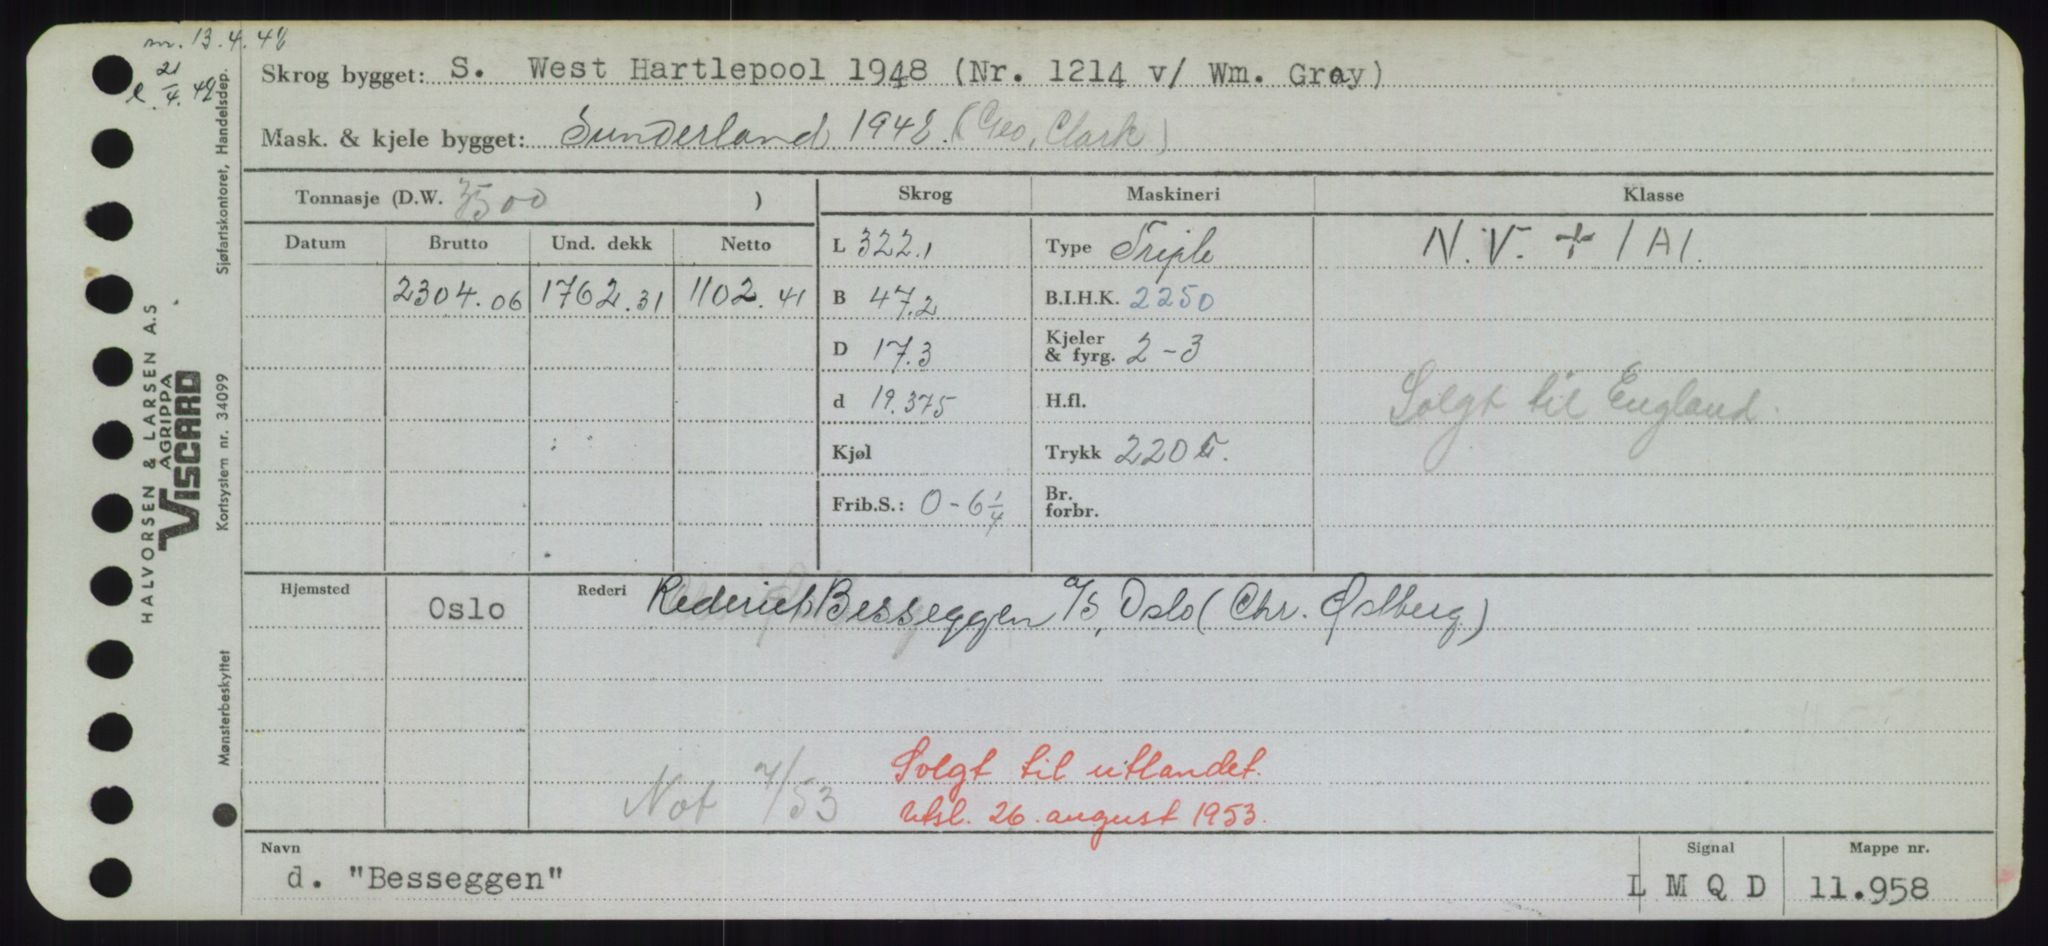 m. 13.4.48
l. 21/4.48
Skrog bygget: S. West Hartlepool 1948 (Nr. 1214 v/ Wm. Gray)
Mask. & kjele bygget: Sunderland 1948. (Geo. Clark)
Tonnasje (D.W. 3500 )
Skrog
Maskineri
Klasse
Datum
Brutto
Und. dekk
Netto
2304.06
1762.31
1102.41
L 322.1
B 47.2
D 17.3
d 19.375
Kjøl
Frib.S.: 0-6 1/4
Type Triple
B.I.H.K. 2250
Kjeler
& fyrg. 2-3
H.fl.
Trykk 220
Br.
forbr.
N.V. + 1A1.
Solgt til England.
Hjemsted
Oslo
Rederi
Rederiet Besseggen A/S, Oslo (Chr. Østberg)
Not 7/53
Solgt til utlandet.
Utsl. 26. august 1953.
Navn
d. "Besseggen"
Signal
L M Q D
Mappe nr.
11.958
HALVORSEN & LARSEN A.S
AGRIPPA
VISCARD
Sjøfartskontoret, Handelsdep.
Kortsystem nr. 34099
Mønsterbeskyttet